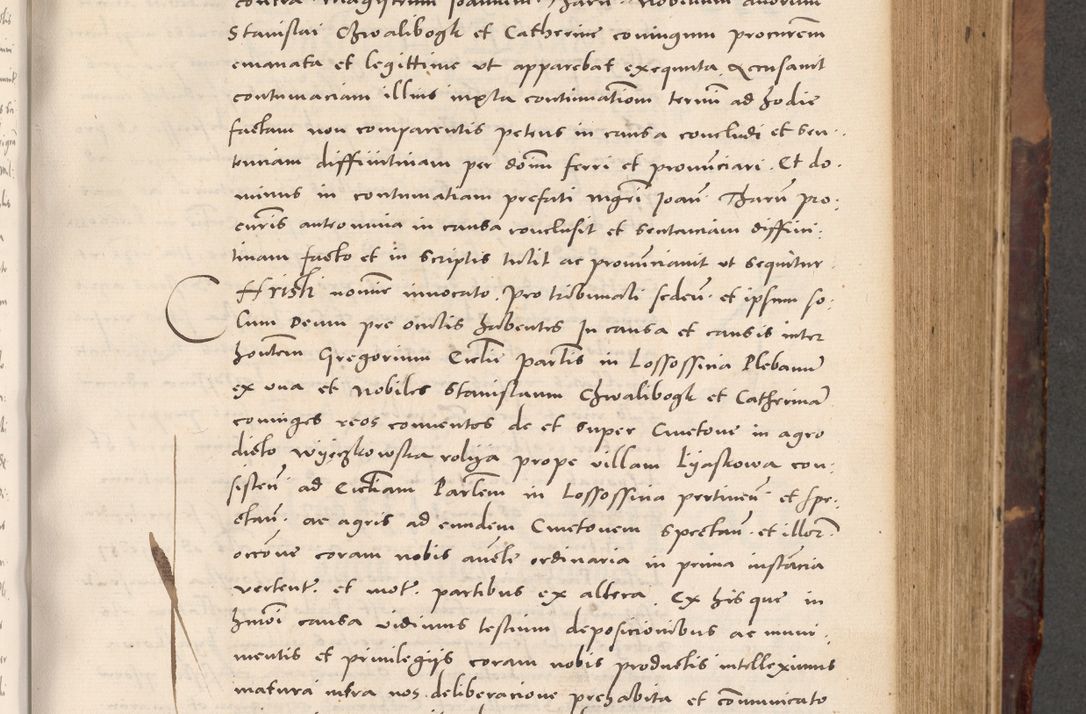 contra Magistrum Joannem Tharn Nobilium duorum
Stanislai Chwalibogk et Catherine coniugum procurem
emanata et legittime ut apparebat exequuta Accusavit
contumaciam illius iuxta continuationem termi ad hodie
factam non comparentis petens in causa concludi et sen-
tenciam diffinitivam per dominum ferri et pronunciari. Et do-
minus in contumatiam prefati mgri Joan Tharn pro-
curis antromnia in causa conclusit et sentenciam diffini-
tivam facto et in scriptis tulit ac pronunciavit ut sequitur
Christi nomine invocato. Pro tribunali seden. et ipsum so-
lum Deum pre oculis habentes In causa et causis inter
honem Gregorium Ecclie partis in Lossossina Plebanum
ex una et Nobiles Stanislaum Chwalibogk et Catherinam
coniuges reos conventos de et super Cmetone in agro
dicto Wyeczkowska rolya prope villam Lyaskowa con-
sisten ad Eccliam Parlem in Lossossina pertinen et spe-
ctan. ac agris ad eundem Cmetonem spectan. et illor.
occone coram nobis aucte ordinaria in prima instancia
verten. et mot. partibus ex altera Ex his que in
hmoi causa vidimus testium deposicionibus ac muni-
mentis et privilegijs coram nobis productis intelleximus
matura intra nos deliberacione prehabita et communicato